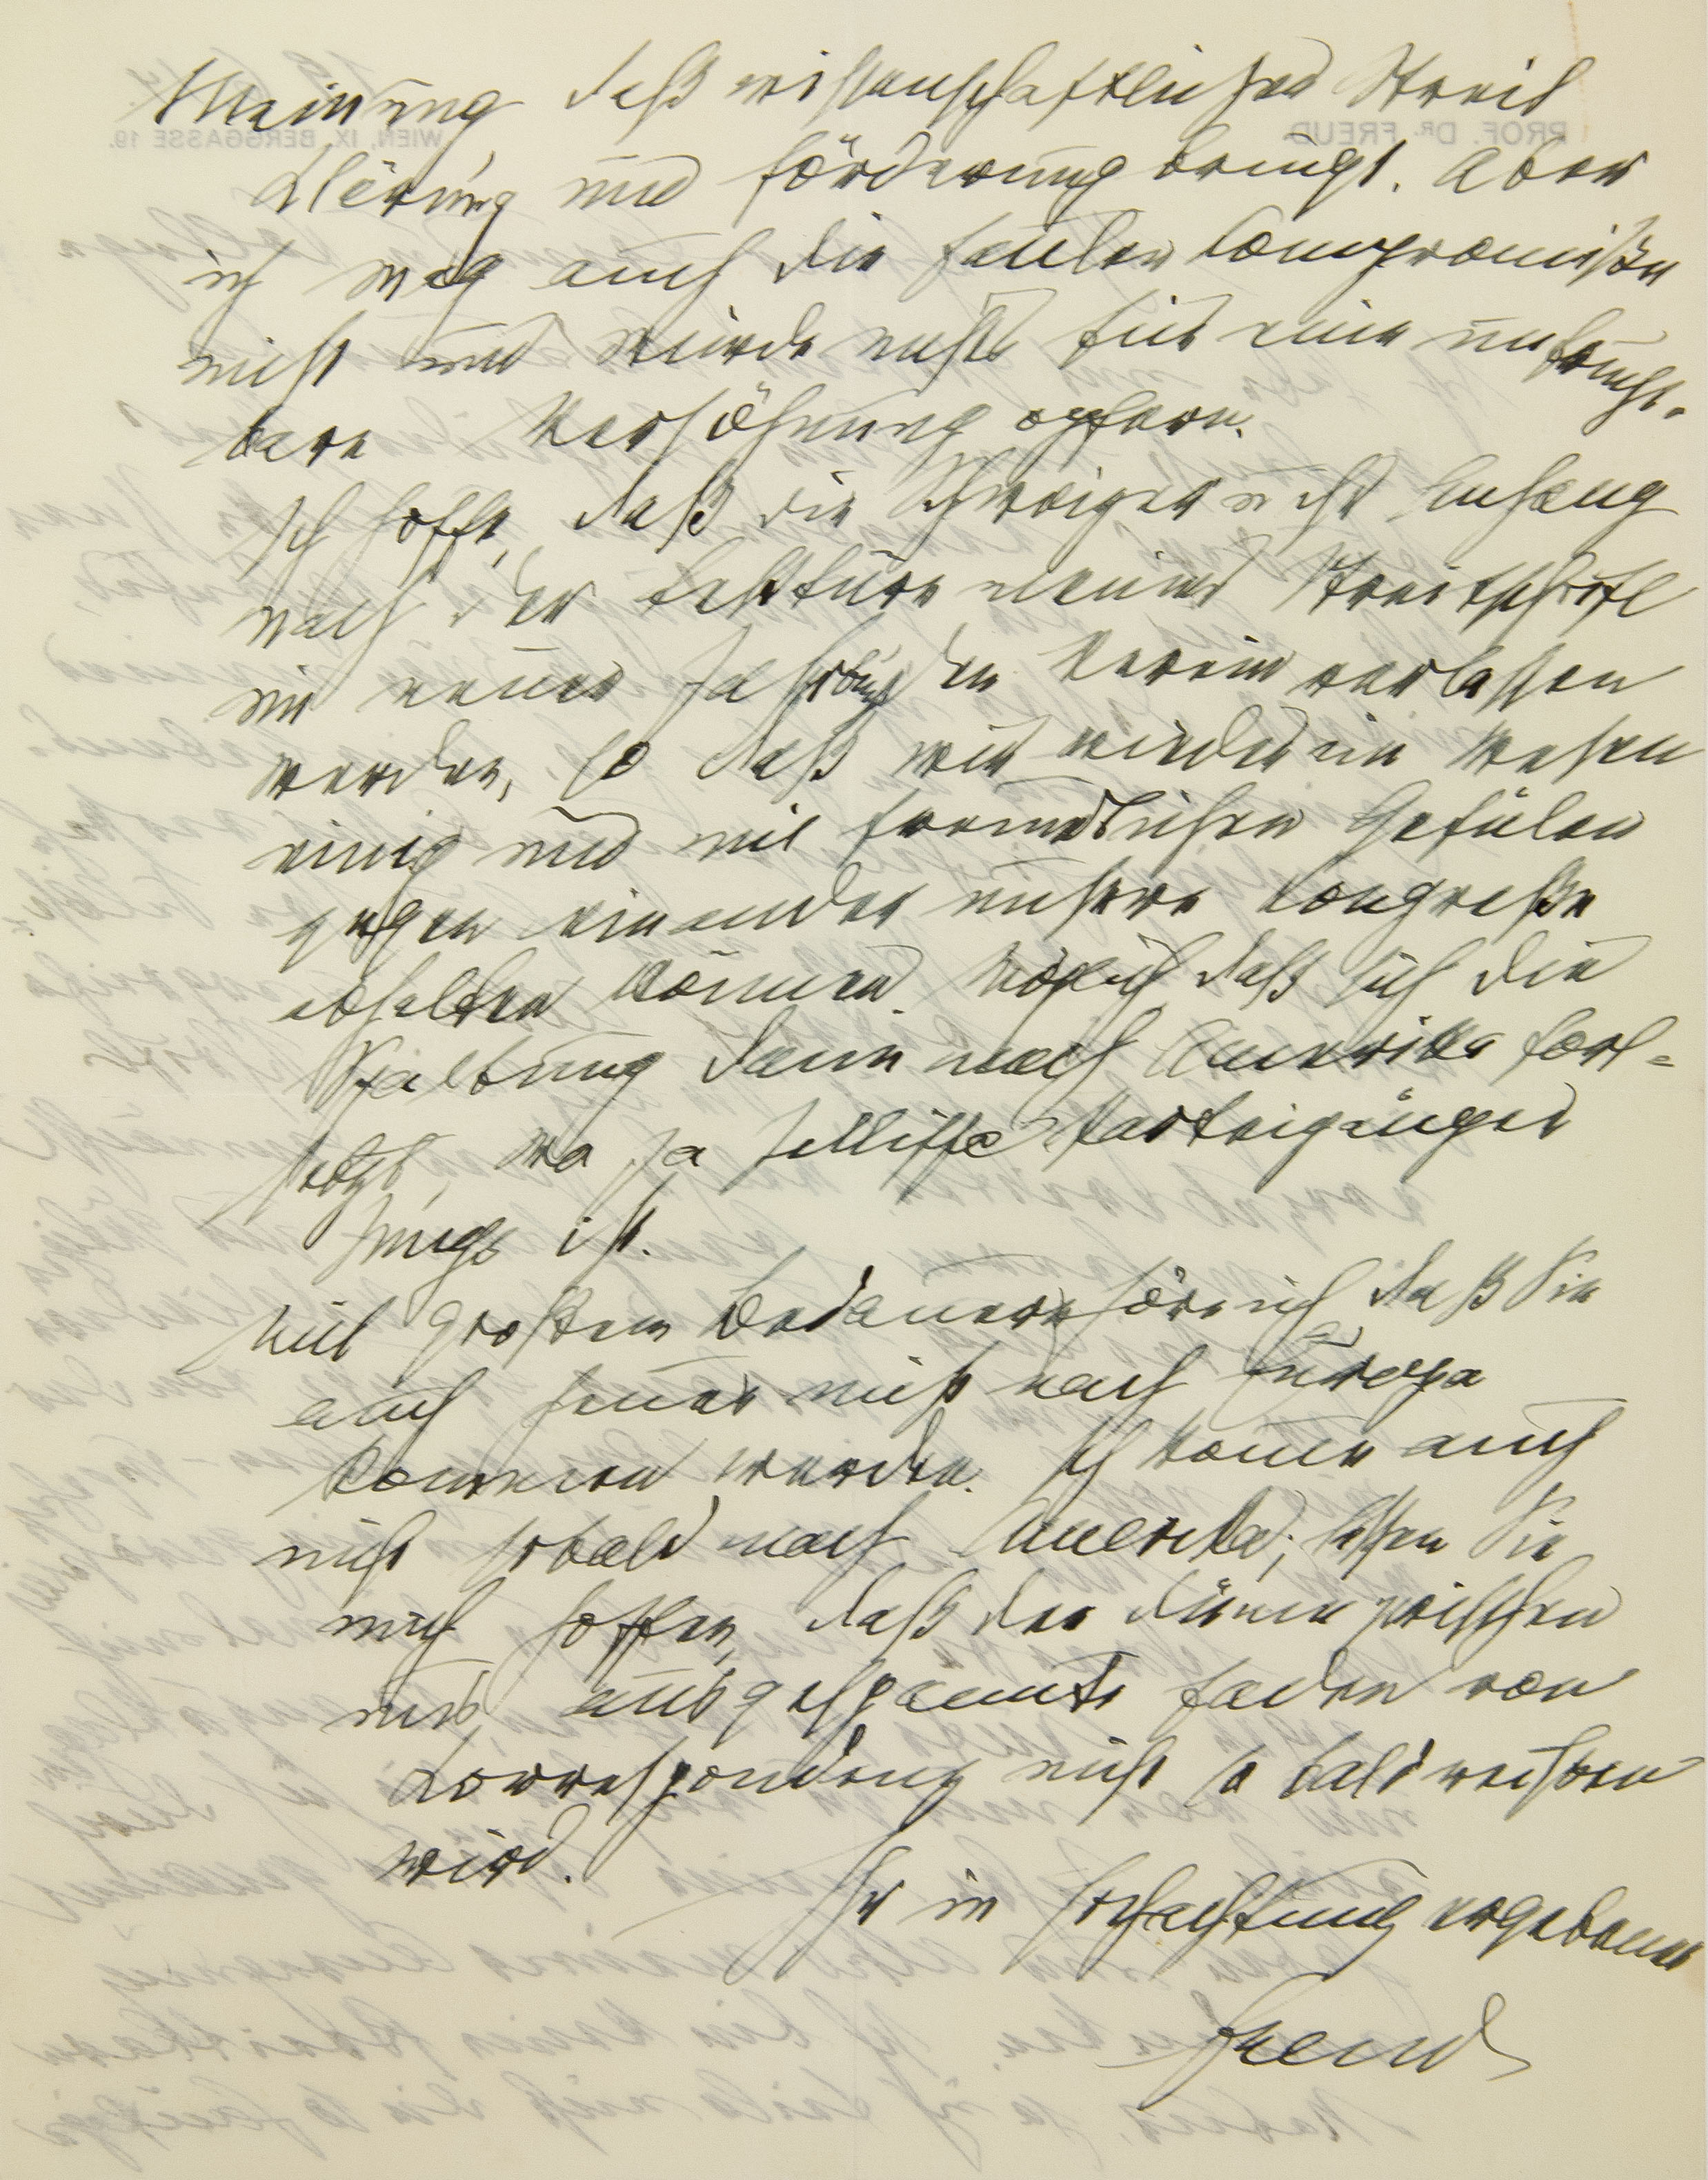 Meinung daß wissenschaftlicher Streit
Klärung und Förderung bringt. Aber
ich mag auch die faulen Compromisse
nicht und würde nichts für eine unfrucht-
bare Versöhnung opfern.
Ich hoffe, daß die Schweizer nicht Anfang
nach der Lektüre meines Streitschrift
im neuen Jahrbuch den Verein verlassen
werden, so daß wir wieder im Wesen
einig und mit freundlichen Gefülen
gegen einander unsere Kongreße
abhalten können. Möglich daß sich die
Spaltung dann nach Amerika fort=
setzt, wo ja Jelliffe Parteigänger
Jungs ist.
Mit großem Bedauern höre ich, daß Sie
auch heuer nicht nach Europa
kommen werden. Ich komme auch
nicht sobald nach Amerika; lassen Sie
mich hoffen, daß der dünne zwischen
uns ausgespannte Faden von
Korrespondenz nicht so bald reißen
wird.
Ihr in Hochachtung ergebener
Freud
PROF. DR. FREUD
WIEN, IX. BERGGASSE 19.